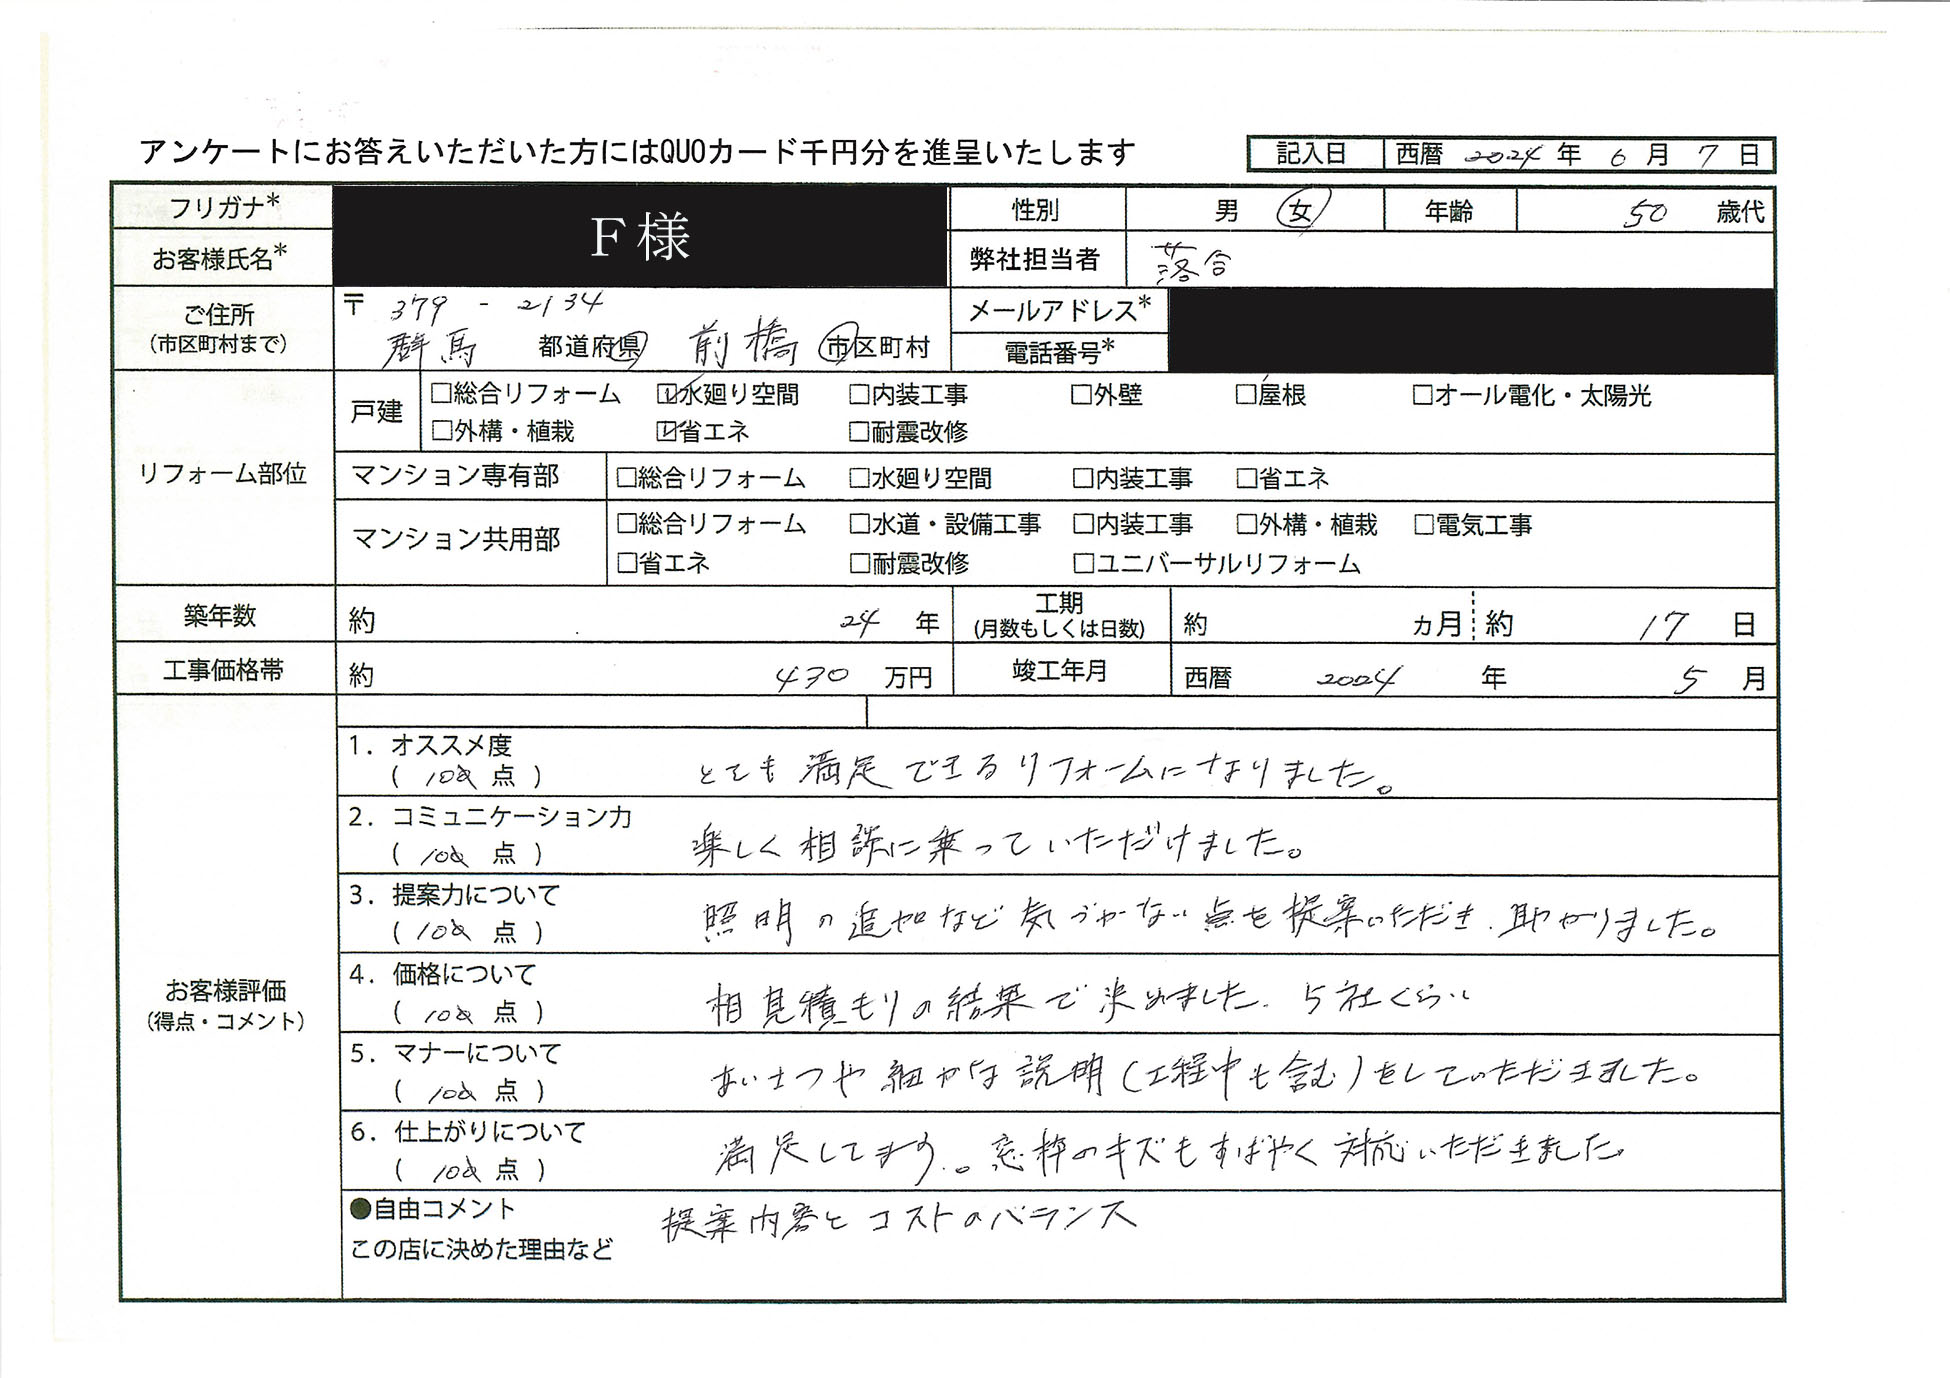 アンケートにお答えいただいた方にはQUOカード千円分を進呈いたします
記入日 西暦 2024 年 6 月 7 日
フリガナ*
お客様氏名*
F様
性別 男 女 年齢 50 歳代
弊社担当者 落合
ご住所
(市区町村まで)
〒 379 - 2134
群馬 都道府県 前橋 市区町村
メールアドレス*
電話番号*
リフォーム部位
戸建
□総合リフォーム ☑水廻り空間 □内装工事 □外壁 □屋根 □オール電化・太陽光
□外構・植栽 ☑省エネ □耐震改修
マンション専有部 □総合リフォーム □水廻り空間 □内装工事 □省エネ
マンション共用部
□総合リフォーム □水道・設備工事 □内装工事 □外構・植栽 □電気工事
□省エネ □耐震改修 □ユニバーサルリフォーム
築年数 約 24 年
工期
(月数もしくは日数)
約 カ月 約 17 日
工事価格帯 約 430 万円 竣工年月 西暦 2024 年 5 月
お客様評価
(得点・コメント)
1. オススメ度
( 100 点 ) とても満足できるリフォームになりました。
2. コミュニケーション力
( 100 点 ) 楽しく相談に乗っていただけました。
3. 提案力について
( 100 点 ) 照明の追加など気づかない点を提案いただき、助かりました。
4. 価格について
( 100 点 ) 相見積もりの結果で決めました、5社くらい
5. マナーについて
( 100 点 ) あいさつや細かな説明(工程中も含む)をしていただきました。
6. 仕上がりについて
( 100 点 ) 満足してます。窓枠のキズもすばやく対応いただきました
●自由コメント
この店に決めた理由など
提案内容とコストのバランス